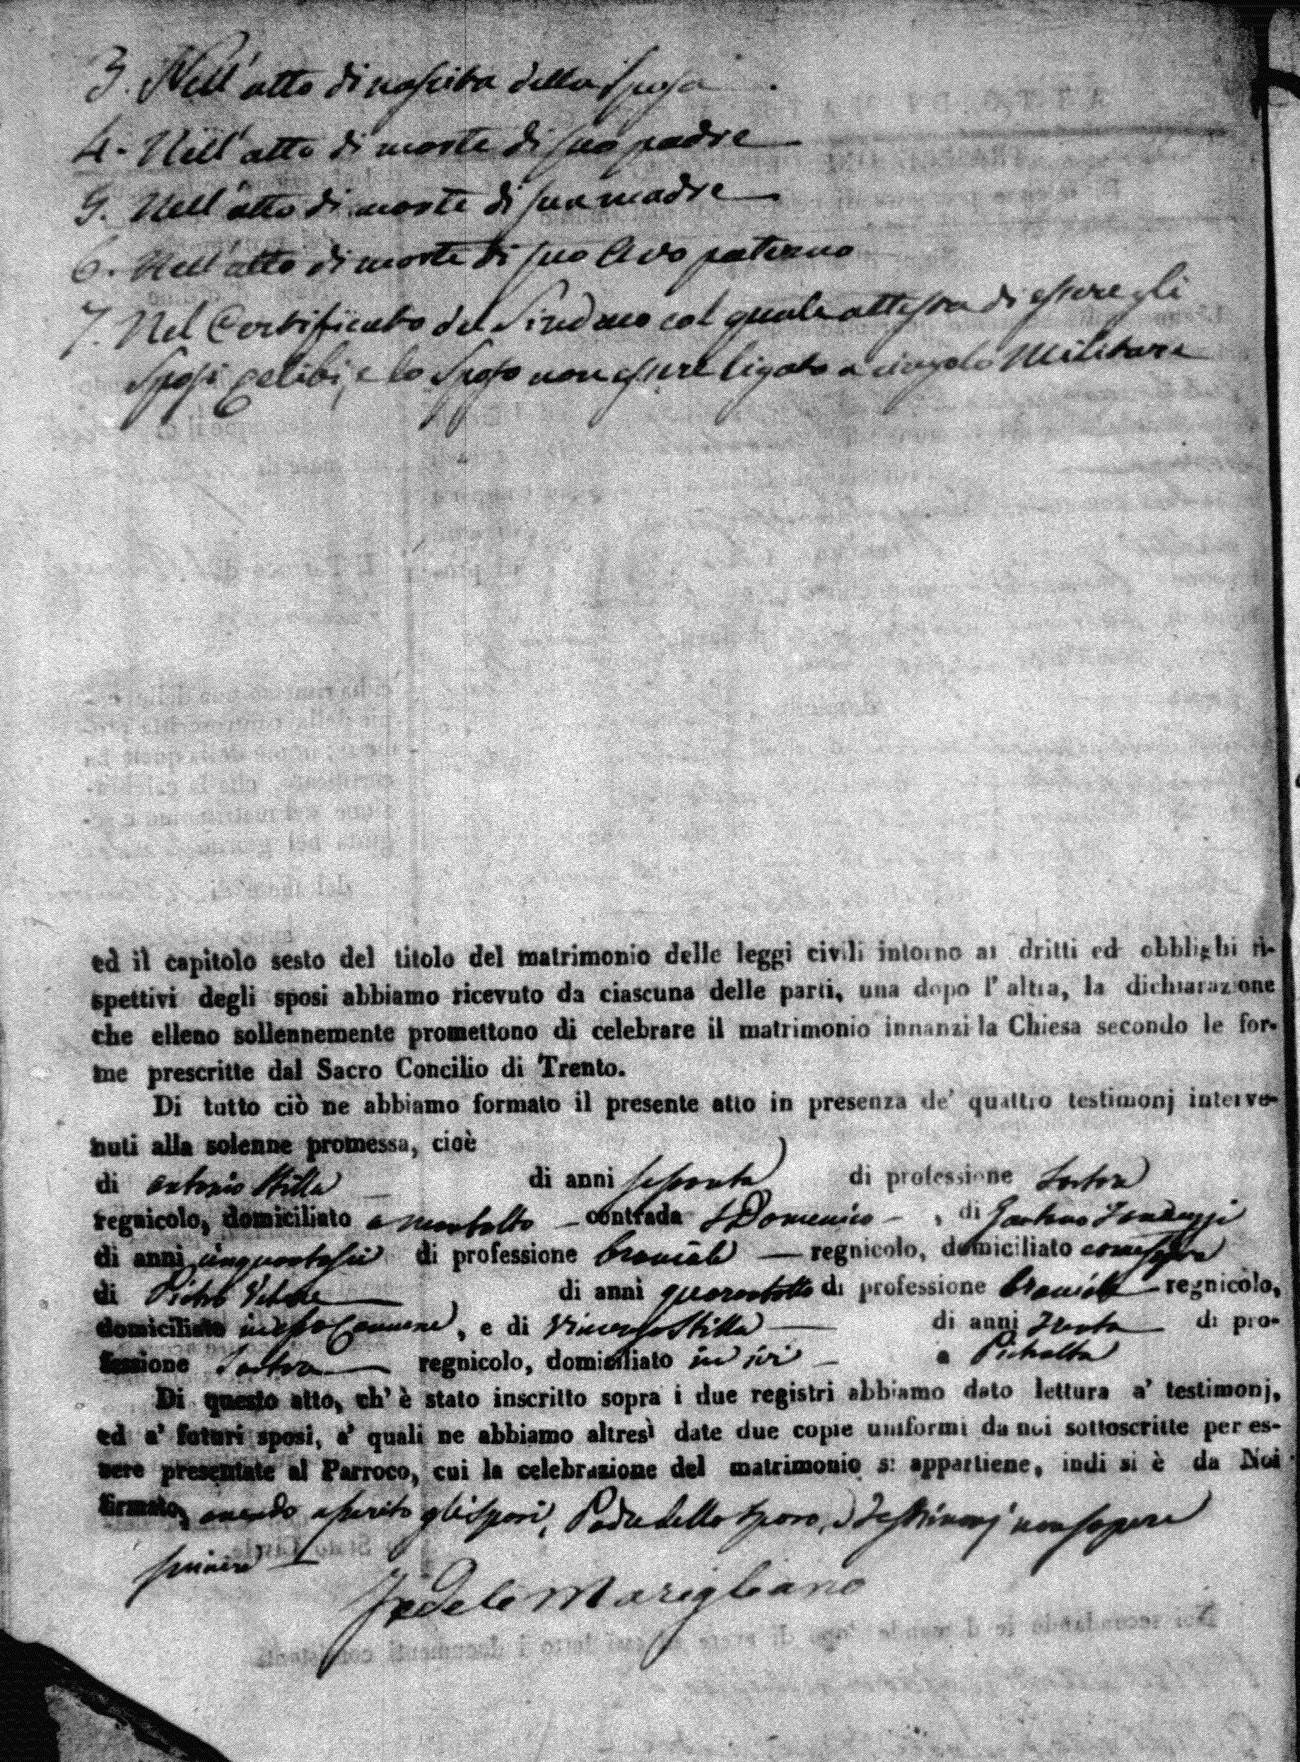 3. Nell'atto di nascita della Sposa
4. Nell'atto di morte di suo padre
5. Nell'atto di morte di sua madre
6. Nell'atto di morte di suo Avo paterno
7. Nel Certificato del Sindaco col quale attesta di essere gli
Sposi celibi, e lo Sposo non essere ligato a cingolo Militare
ed il capitolo sesto del titolo del matrimonio delle leggi civili intorno ai dritti ed obblighi ri-
spettivi degli sposi abbiamo ricevuto da ciascuna delle parti, una dopo l'altra, la dichiarazione
che elleno sollennemente promettono di celebrare il matrimonio innanzi la Chiesa secondo le for-
me prescritte dal Sacro Concilio di Trento.
Di tutto ciò ne abbiamo formato il presente atto in presenza de' quattro testimonj interve-
nuti alla solenne promessa, cioè
di Antonio Stilla di anni sessanta di professione Sartore
regnicolo, domiciliato a Montalto contrada S Domenico, di Gaetano
di anni cinquantasei di professione braciale regnicolo, domiciliato come sopra
di Pietro di anni quarantotto di professione braciale regnicolo,
domiciliato in esso Comune, e di Vincenzo Stilla di anni trenta di pro-
fessione Sartore regnicolo, domiciliato in ivi a Pietralta
Di questo atto, ch'è stato inscritto sopra i due registri abbiamo dato lettura a' testimonj,
ed a' futuri sposi, a' quali ne abbiamo altresì date due copie uniformi da noi sottoscritte per es-
sere presentate al Parroco, cui la celebrazione del matrimonio si appartiene, indi si è da Noi
firmato, avendo asserito gli Sposi, Padre dello Sposo, e Testimonj non sapere
scrivere
Fedele Marigliano